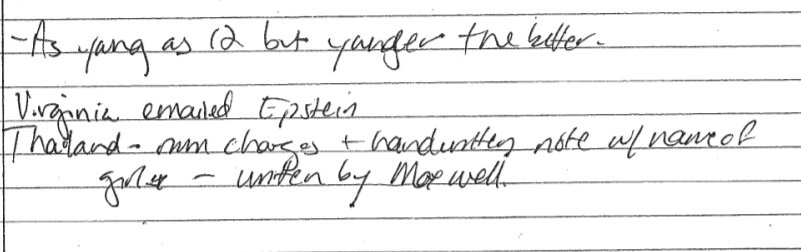 - As young as 12 but younger the better.
Virginia emailed Epstein
Thailand - charges + handwritten note w/ name of
girl - written by Maxwell.